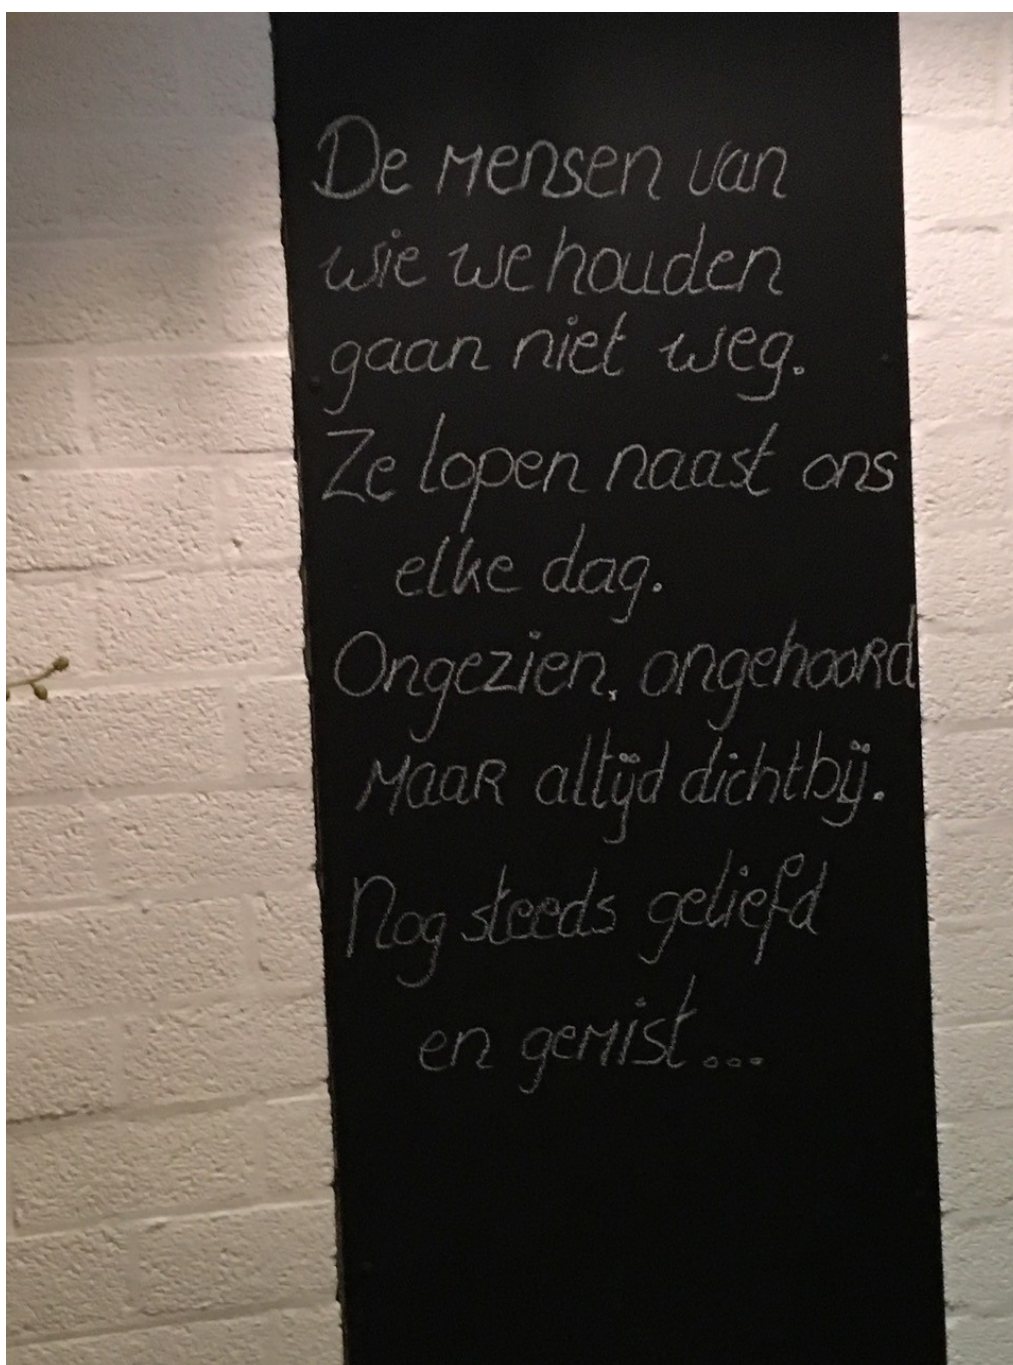 De mensen van
wie we houden
gaan niet weg.
Ze lopen naast ons
elke dag.
Ongezien, ongehoord
maar altijd dichtbij.
Nog steeds geliefd
en gemist...